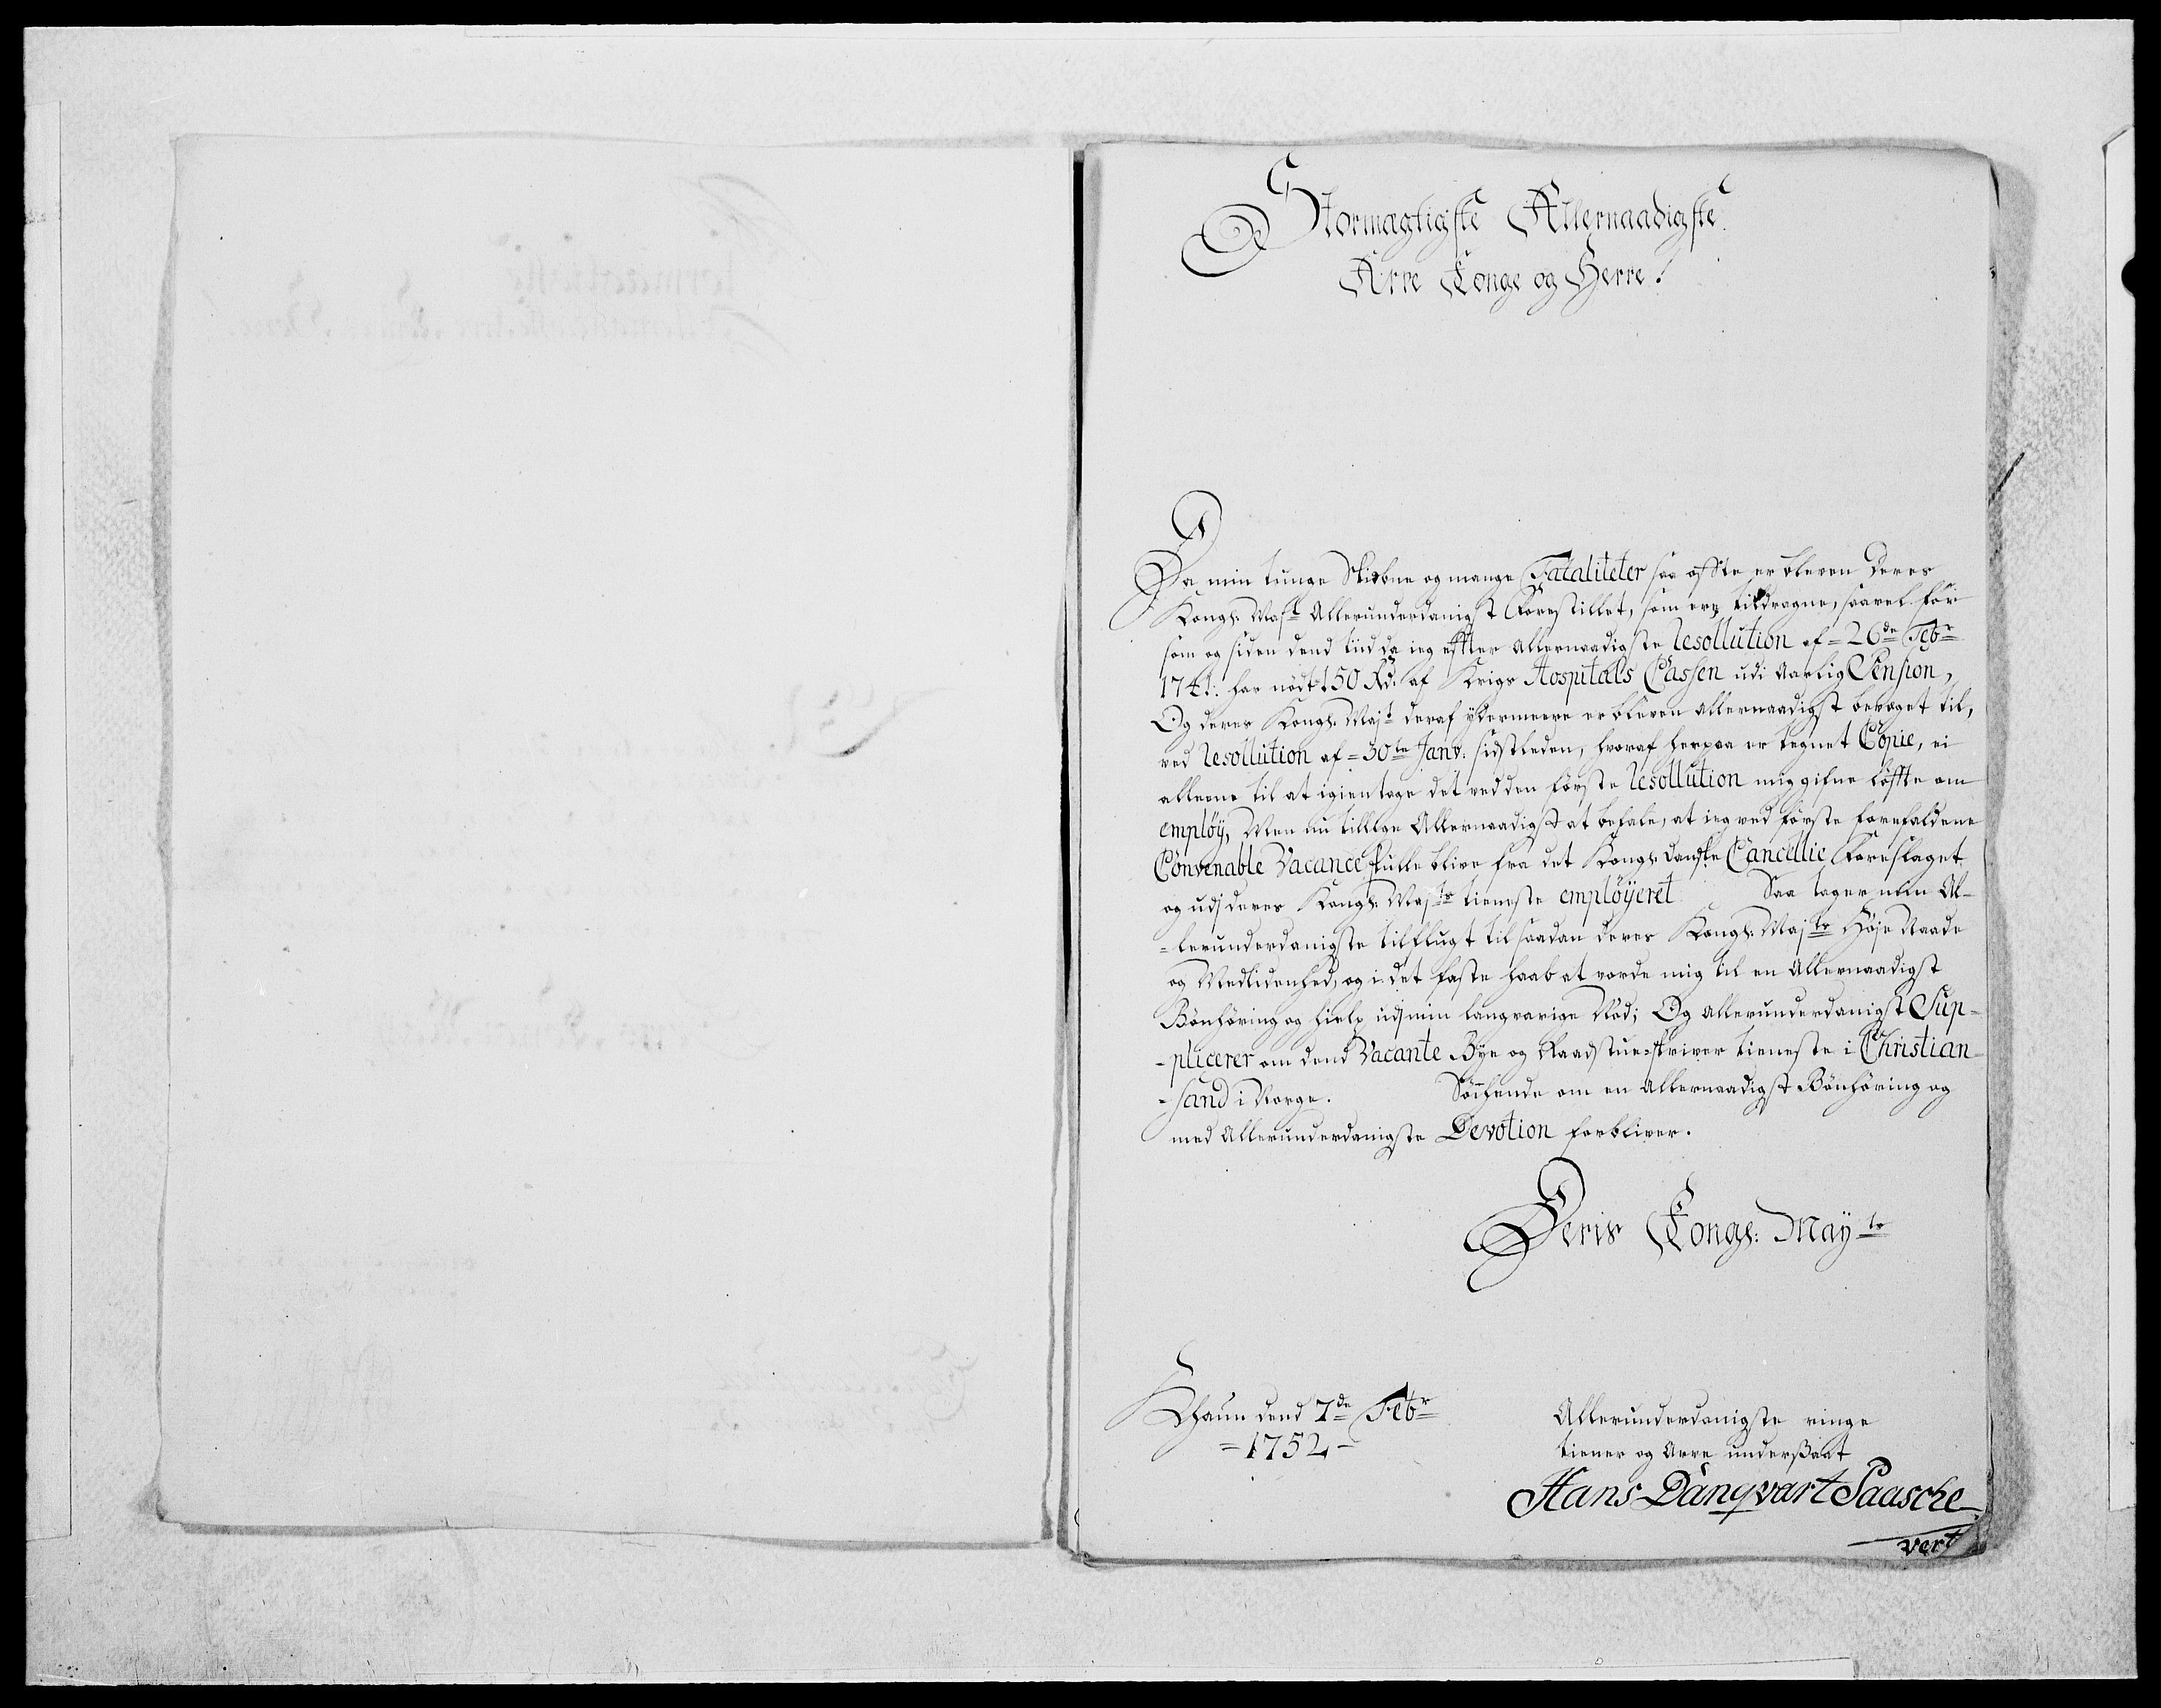 Stormægtigste Allernaadigste
Arve Konge og Herre!
Da min tunge Skiebne og mange Fataliteter saa offte er bleven Deres
Kongl. Majt Allerunderdanigst Forestillet, som ere tildragne, saavel før
som og siden dend tiid da ieg effter allernaadigste Resollution af = 26de Febr
1741. har nødt 150 Rd. af Krigs Hospitals Cassen udi Aarlig Pension,
Og deres Kongl. Majt deraf ydermeere er bleven allernaadigst bevæget til,
ved Resollution af = 30te Janv. sidstleden, hvoraf herpaa er tegnet Copie, ei
alleene til at igientage det ved den første Resollution mig gifne løffte om
employ, Men nu tillige Allernaadigst at befale, at ieg ved første forefaldene
Convenable Vacance skulle blive fra det Kongl. Danske Cancellie Foreslaget
og udj deres Kongl. Majts tieneste employeret Saa tager min Al-
-lerunderdanigste tilflugt til saadan deres Kongl. Majts Høje Naade
og Medlidenhed, og i det faste haab at vorde mig til en Allernaadigst
Bønhøring og hielp udj min langvarige Nød; Og allerunderdanigst Sup-
-plicerer om dend Vacante Bye og Raadstue-skriver tieneste i Christian-
-sand i Norge. Søfsende om en allernaadigst Bønhøring og
med Allerunderdanigste Devotion forbliver.
Deris Kongl: Mayts
Khaun dend 7de Febr
= 1752 -
Allerunderdanigste ringe
tiener og Arve undersaat
Hans Danqvart Paasche
vert